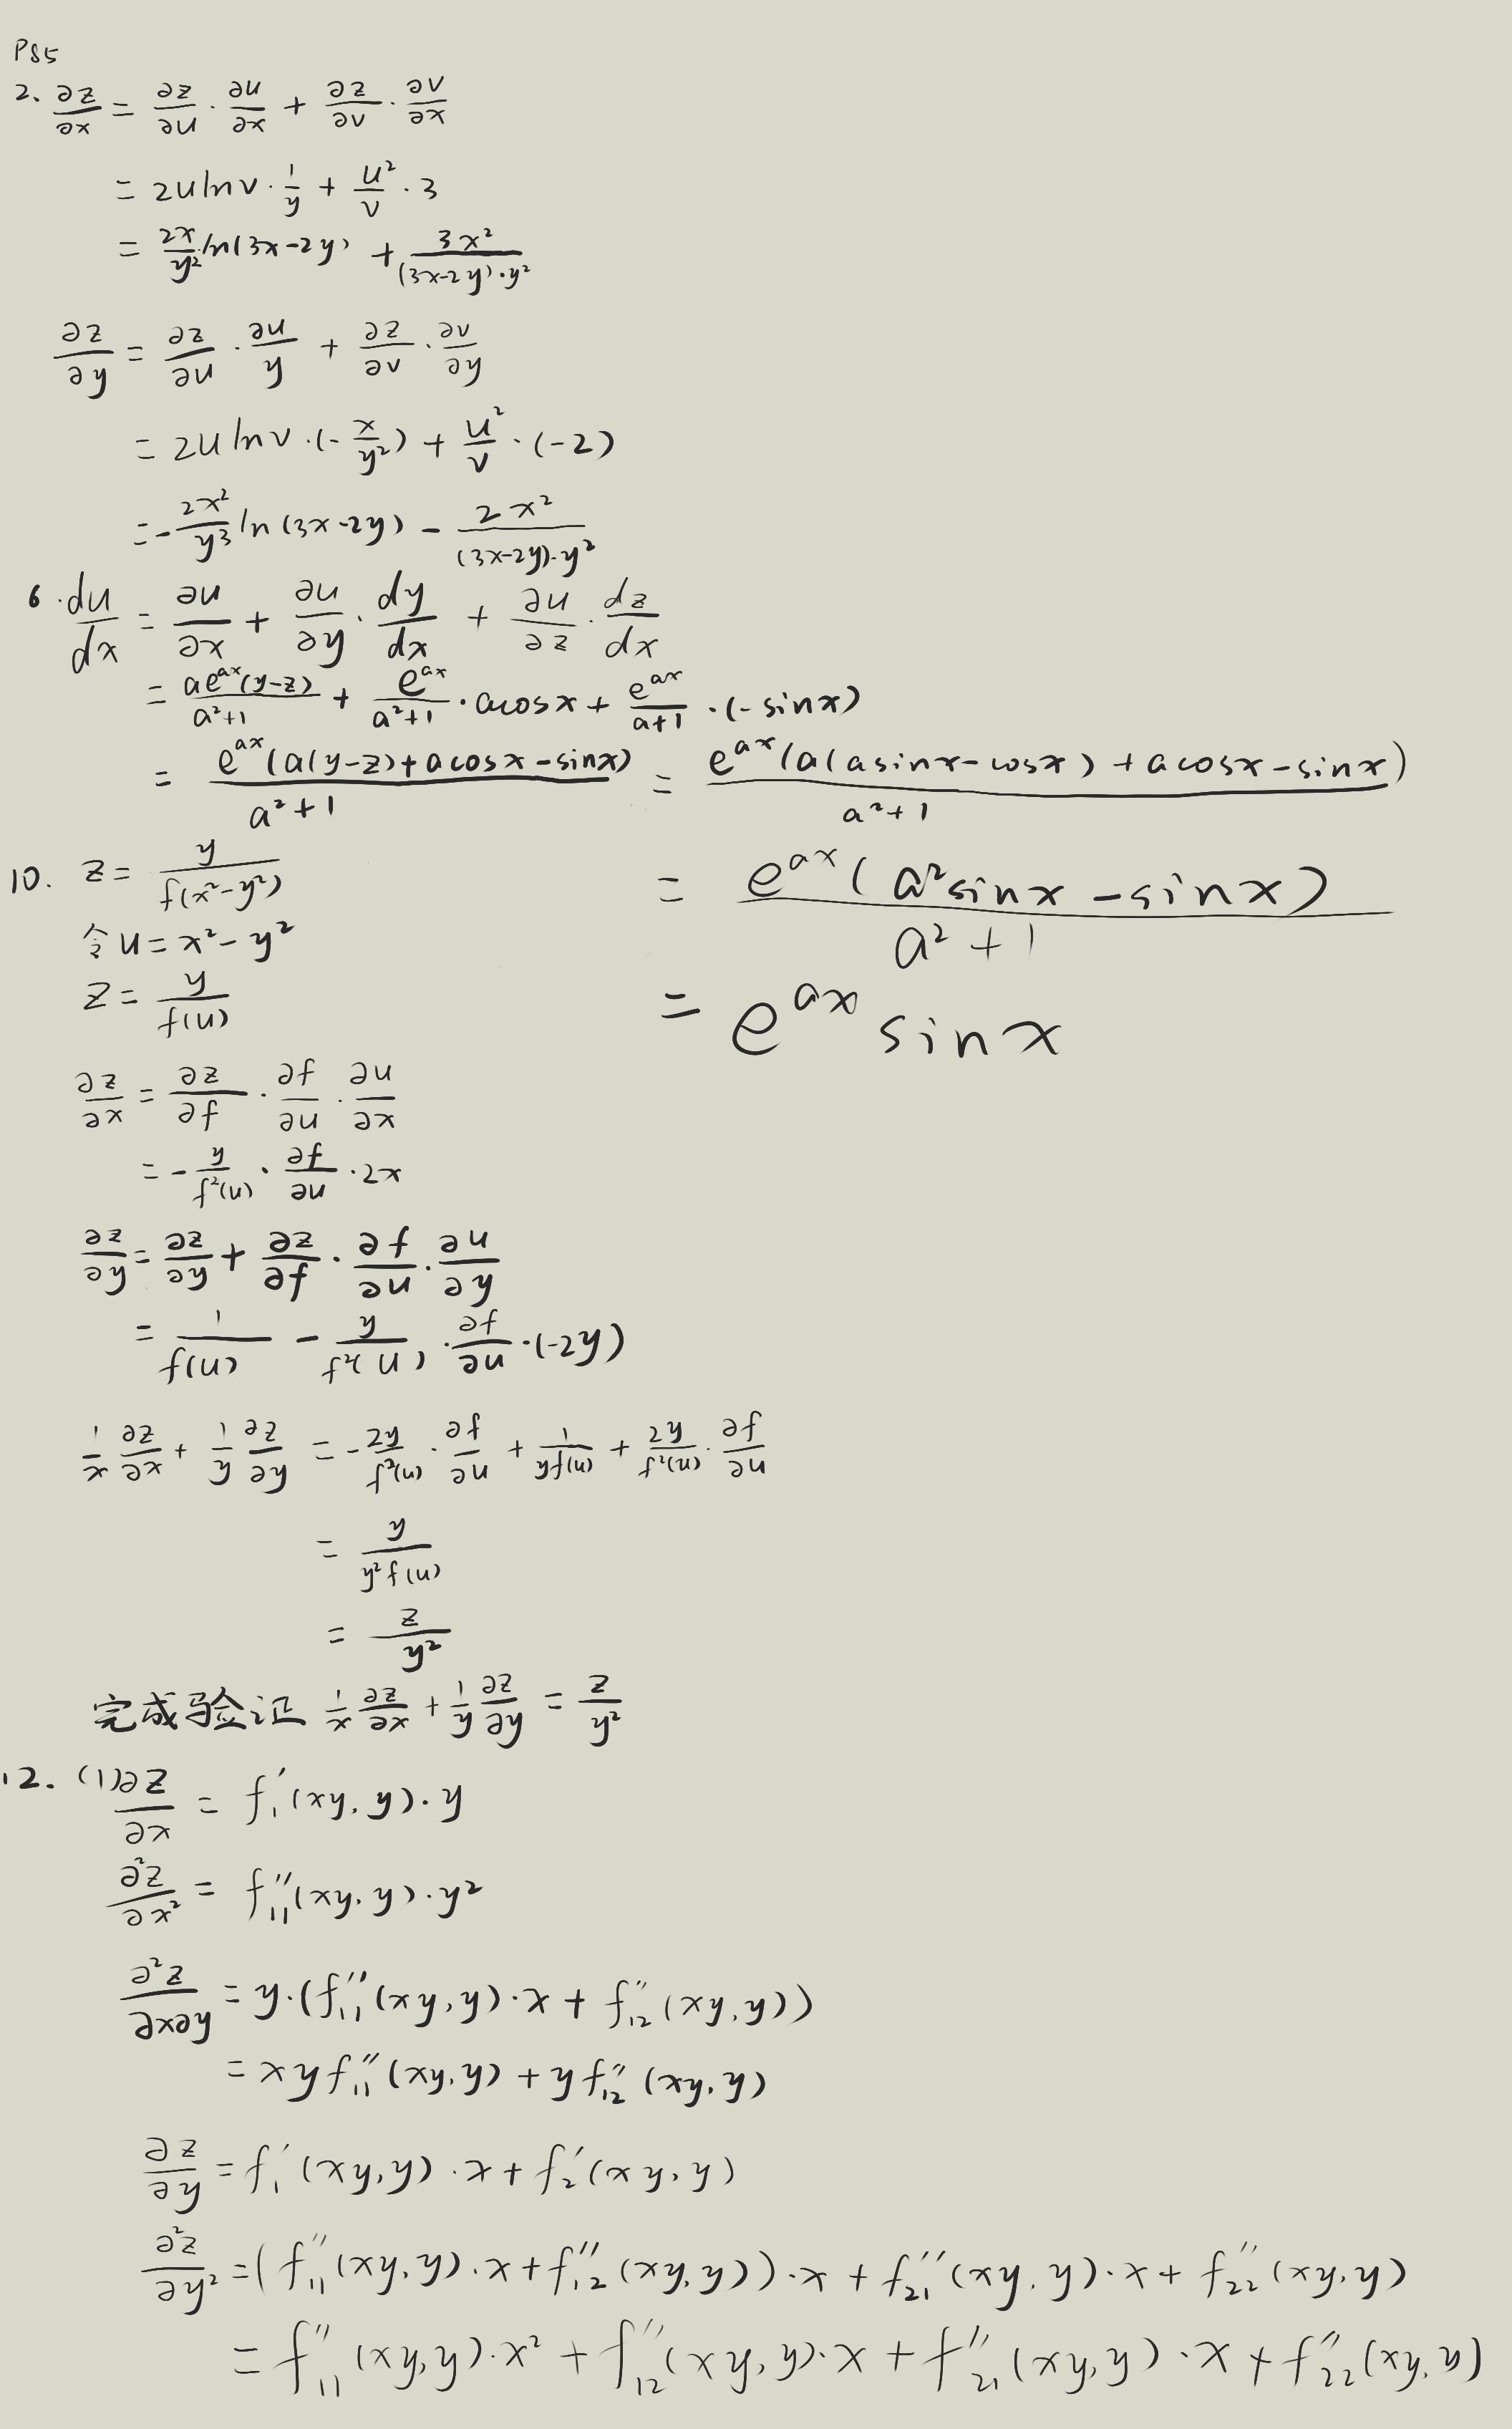 P85
2. ∂z/∂x = ∂z/∂u · ∂u/∂x + ∂z/∂v · ∂v/∂x
= 2u ln v · 1/y + u²/v · 3
= 2x/y² ln(3x-2y) + 3x²/((3x-2y)·y²)
∂z/∂y = ∂z/∂u · ∂u/y + ∂z/∂v · ∂v/∂y
= 2u ln v · (-x/y²) + u²/v · (-2)
= -2x²/y³ ln(3x-2y) - 2x²/((3x-2y)·y²)
6. du/dx = ∂u/∂x + ∂u/∂y · dy/dx + ∂u/∂z · dz/dx
= ae^{ax}(y-z)/(a²+1) + e^{ax}/(a²+1) · acosx + e^{ax}/(a+1) · (-sinx)
= e^{ax}(a(y-z)+acosx-sinx)/(a²+1) = e^{ax}(a(asinx-cosx)+acosx-sinx)/(a²+1)
= e^{ax}(a²sinx-sinx)/(a²+1)
= e^{ax} sinx
10. z = y/f(x²-y²)
令 u = x²-y²
z = y/f(u)
∂z/∂x = ∂z/∂f · ∂f/∂u · ∂u/∂x
= -y/f²(u) · ∂f/∂u · 2x
∂z/∂y = ∂z/∂y + ∂z/∂f · ∂f/∂u · ∂u/∂y
= 1/f(u) - y/f²(u) · ∂f/∂u · (-2y)
1/x ∂z/∂x + 1/y ∂z/∂y = -2y/f²(u) · ∂f/∂u + 1/yf(u) + 2y/f²(u) · ∂f/∂u
= y/y²f(u)
= z/y²
完成验证 1/x ∂z/∂x + 1/y ∂z/∂y = z/y²
12. (1) ∂z/∂x = f₁'(xy, y)·y
∂²z/∂x² = f₁₁''(xy, y)·y²
∂²z/∂x∂y = y·(f₁₁''(xy, y)·x + f₁₂''(xy, y))
= xyf₁₁''(xy, y) + yf₁₂''(xy, y)
∂z/∂y = f₁'(xy, y)·x + f₂'(xy, y)
∂²z/∂y² = (f₁₁''(xy, y)·x + f₁₂''(xy, y))·x + f₂₁''(xy, y)·x + f₂₂''(xy, y)
= f₁₁''(xy, y)·x² + f₁₂''(xy, y)·x + f₂₁''(xy, y)·x + f₂₂''(xy, y)